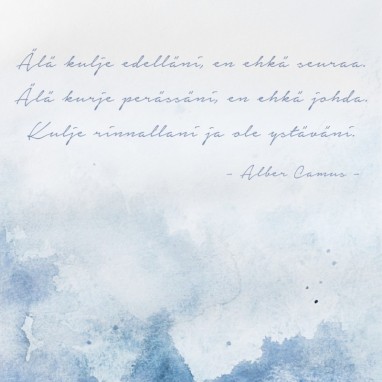 Älä kulje edelläni, en ehkä seuraa.
Älä kurje perässäni, en ehkä johda.
Kulje rinnallani ja ole ystäväni.
- Alber Camus -